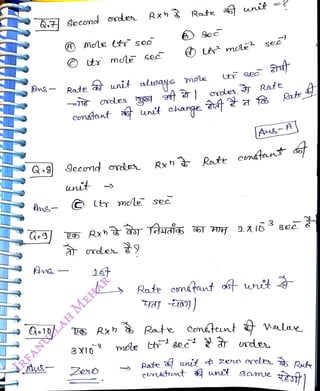 Q.7) Second order Rxn के Rate की unit = ?
Ⓐ mole Ltr⁻ sec⁻
ⓑ sec⁻
Ⓒ Ltr mole⁻ sec⁻
ⓓ Ltr² mole⁻² sec⁻¹
Ans - Rate की unit always mole Ltr⁻ sec⁻ होगी
चाहे order कुछ भी हो। order से Rate
constant की unit change होती है न कि Rate की
Ans-A
Q.8) Second order Rxn के Rate constant की
unit →
Ans- Ⓒ Ltr mole⁻ sec⁻
Q.9) एक Rxn के वेग नियतांक का मान 2×10⁻³ sec⁻ है
तो order है?
Ans - 1st
→ Rate constant की unit से
पता चला।
Q.10) एक Rxn के Rate constant की value
3×10⁻³ mole Ltr⁻¹ sec⁻¹ है तो order
Ans- Zero → Rate की unit & zero order के Rate
constant की unit same रहेगी।
IRFANULLAH MEHAR